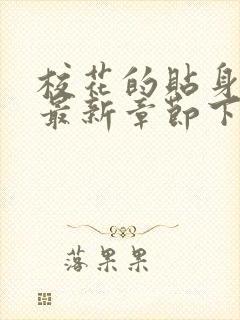 校花的貼身
最新章節下
落果果